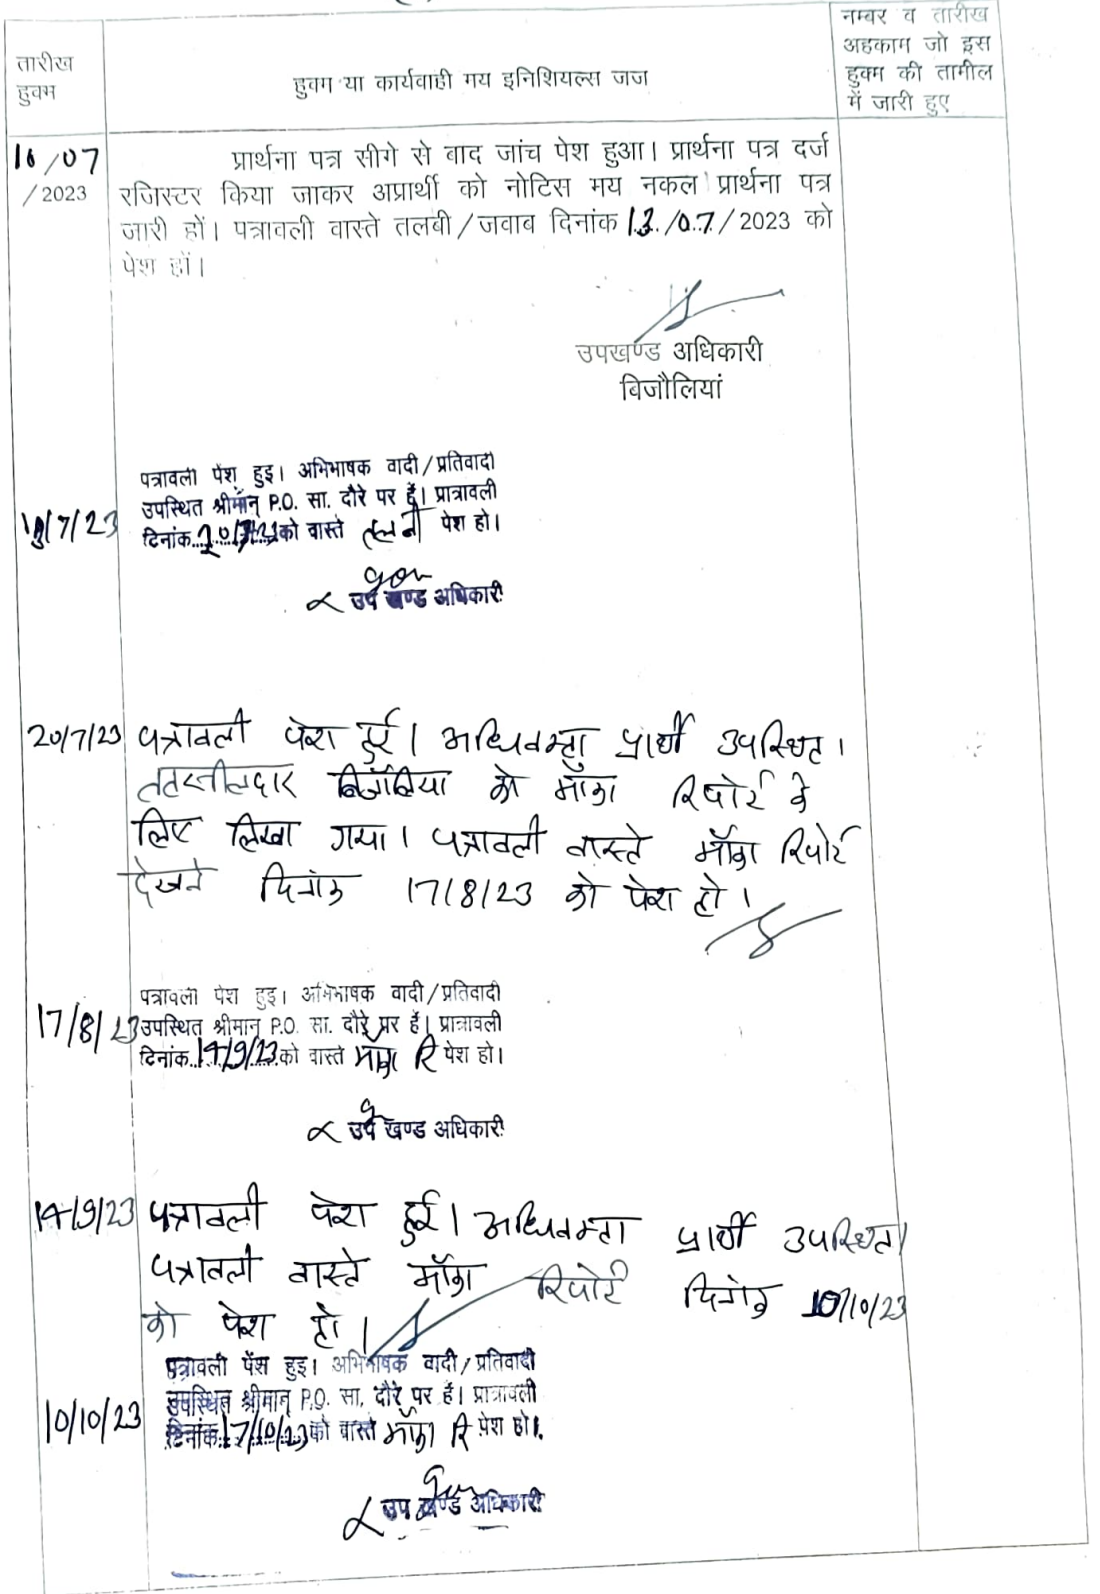 तारीख
हुक्म
हुक्म या कार्यवाही मय इनिशियल्स जज
नम्बर व तारीख
अहकाम जो इस
हुक्म की तामील
में जारी हुए
/07
/2023
प्रार्थना पत्र सीगे से बाद जांच पेश हुआ। प्रार्थना पत्र दर्ज
रजिस्टर किया जाकर अप्रार्थी को नोटिस मय नकल प्रार्थना पत्र
जारी हों। पत्रावली वास्ते तलबी/जवाब दिनांक 13/07/2023 को
पेश हों।
उपखण्ड अधिकारी
बिजौलियां
/7/23
पत्रावली पेश हुइ। अभिभाषक वादी/प्रतिवादी
उपस्थित श्रीमान् P.O. सा. दौरे पर हैं। प्रात्रावली
दिनांक 20/7/23 को वास्ते तलबी पेश हो।
उप खण्ड अधिकारी
20/7/23
पत्रावली पेश हुई। अधिवक्ता प्रार्थी उपस्थित।
तहसीलदार बिजौलिया को मौका रिपोर्ट के
लिए लिखा गया। पत्रावली वास्ते मौका रिपोर्ट
देखने दिनांक 17/8/23 को पेश हो।
17/8/23
पत्रावली पेश हुइ। अभिभाषक वादी/प्रतिवादी
उपस्थित श्रीमान् P.O. सा. दौरे पर हैं। प्रात्रावली
दिनांक 14/9/23 को वास्ते मौका रि पेश हो।
उप खण्ड अधिकारी
14/9/23
पत्रावली पेश हुई। अधिवक्ता प्रार्थी उपस्थित।
पत्रावली वास्ते मौका रिपोर्ट दिनांक 10/10/23
को पेश हो।
10/10/23
पत्रावली पेश हुइ। अभिभाषक वादी/प्रतिवादी
उपस्थित श्रीमान् P.O. सा. दौरे पर हैं। प्रात्रावली
दिनांक 17/10/23 को वास्ते मौका रि पेश हो।
उप खण्ड अधिकारी